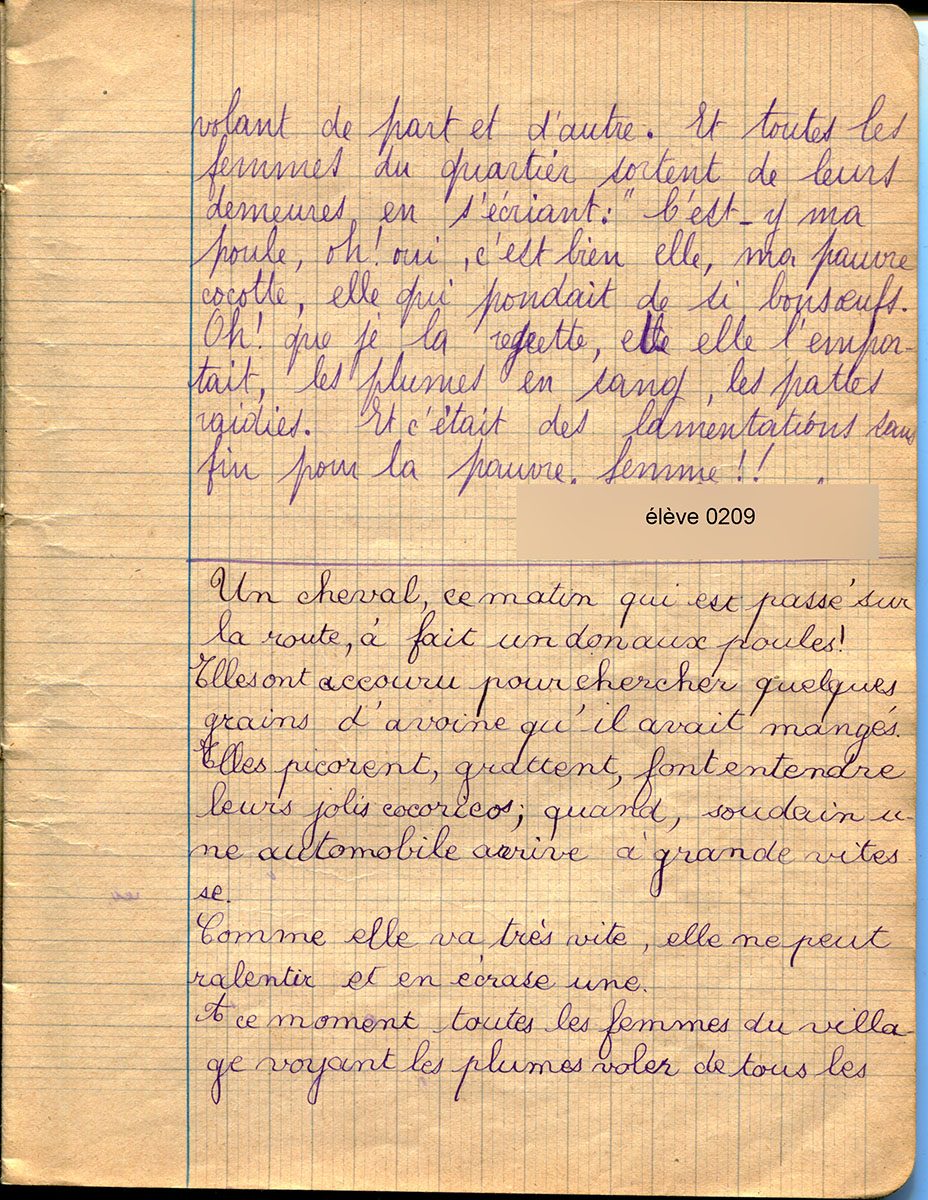 volant de part et d'autre. Et toutes les
femmes du quartier sortent de leurs
demeures en s'écriant: " C'est-y ma
poule, oh! oui, c'est bien elle, ma pauvre
cocotte, elle qui pondait de si bons œufs.
Oh! que je la regrette, elle elle l'empor-
tait, les plumes en sang, les pattes
raidies. Et c'était des lamentations sans
fin pour la pauvre femme!!
élève 0209
Un cheval, ce matin qui est passé sur
la route, à fait un don aux poules!
Elles ont accouru pour chercher quelques
grains d'avoine qu'il avait mangés.
Elles picorent, grattent, font entendre
leurs jolis cocoricos; quand, soudain u-
ne automobile arrive à grande vites-
se.
Comme elle va très vite, elle ne peut
ralentir et en écrase une.
A ce moment toutes les femmes du villa-
ge voyant les plumes voler de tous les